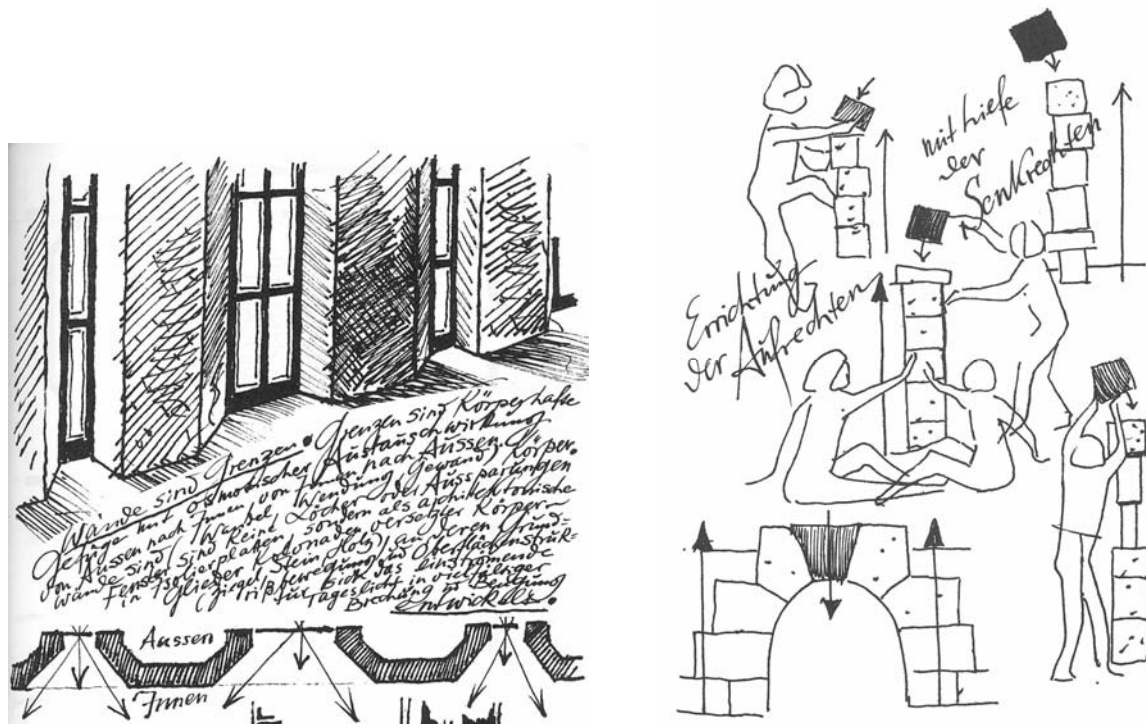 Wände sind Grenzen. Grenzen sind Körperhafte
Gefüge mit osmotischer Austauschwirkung
von Aussen nach Innen von Innen nach Aussen.
Wände sind (Wandel, Wendung, Gewand) Körper.
Fenster sind keine Löcher oder Aussparungen
in Isolierplatten, sondern als architektonische
Glieder Kolonaden versetzter Körper-
(Ziegel, Stein, Holz), an deren Grund-
rißbewegung und Oberflächenstruk-
tur sich das einströmende
Tageslicht in vielfältiger
Brechung zu Bewegung
entwickelt.
Aussen
Innen
mit Hilfe
der
Senkrechten
Errichtung
der Aufrechten